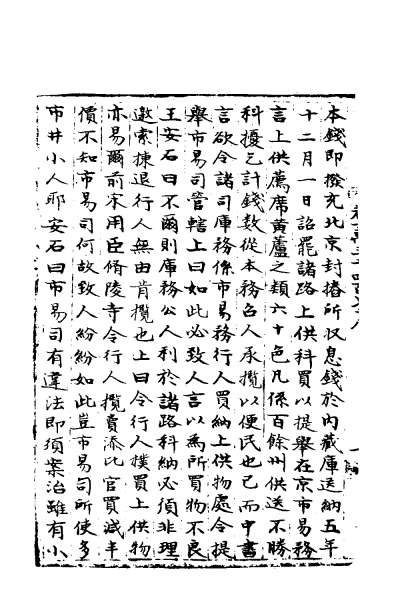 本錢即撥充北京封樁所収息錢於內藏庫送納五年
十二月一日詔罷諸路上供科買以提舉在京市易務
言上供薦席黃蘆之類六十色凡係百餘州供送不勝
科擾乞計錢數從本務召人承攬以便民也已而中書
言欲令諸司庫務係市易務行人買納上供物處令提
舉市易司管轄上曰如此必致人言以為所買物不良
王安石曰不爾則庫務公人利於諸路科納必須非理
邀索揀退行人無由肯攬也上曰令行人撲買上供物
亦易爾前宋用臣脩陵寺令行人攬賣添比官買減半
價不知市易司何故致人紛紛如此豈市易司所使多
市井小人耶安石曰市易司有違法即須案治雖有小